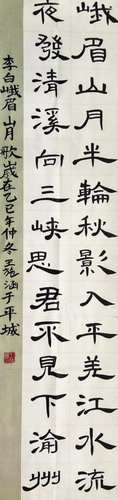 峨眉山月半輪秋影入平羌江水流
夜發清溪向三峽思君不見下渝州
李白峨眉山月歌歲在乙巳年仲冬王施涵于平城